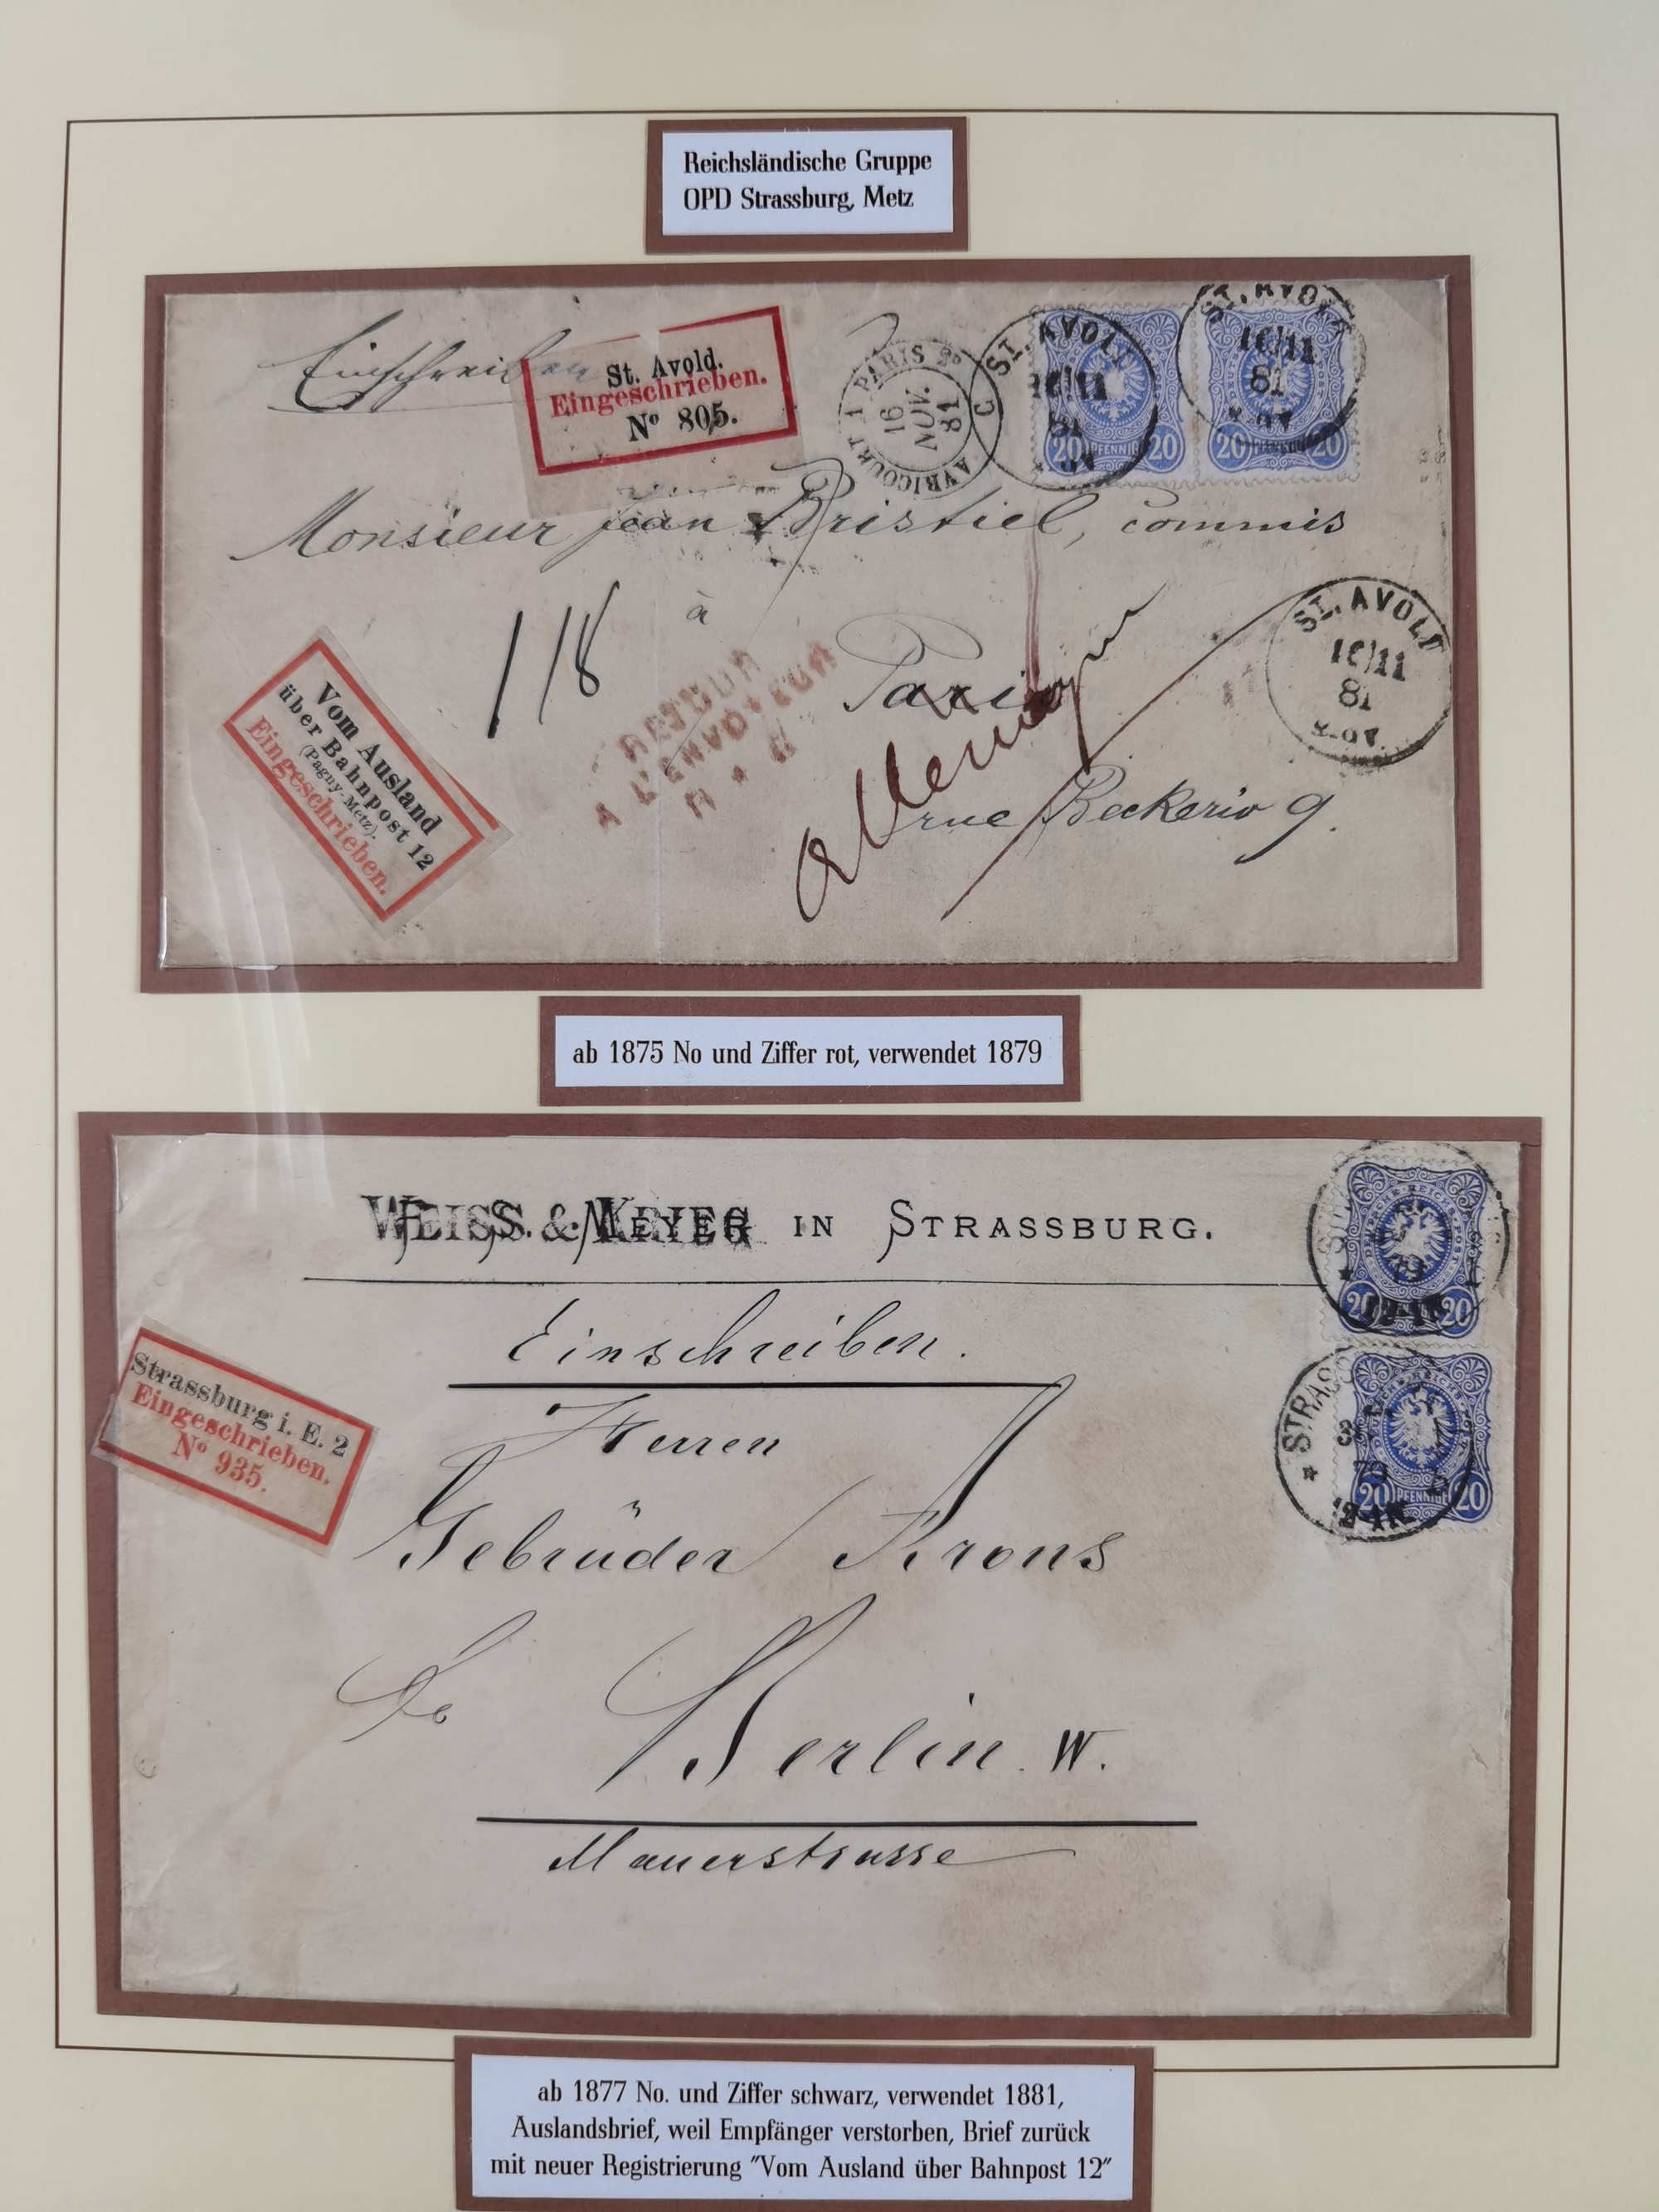 Reichsländische Gruppe
OPD Strassburg, Metz
Einschreiben
St. Avold.
Eingeschrieben.
No 805.
AVRICOURT A PARIS 2o
16
NOV.
81
C
ST. AVOLD
16/11
81
20 PFENNIG 20
ST. AVOLD
16/11
81
20 PFENNIG 20
Monsieur jean Bristiel, commis
118
à
Paris
RETOUR
A L'ENVOYEUR
Allemagne
rue Beckeria 9.
ST. AVOLD
16/11
81
8-9V.
Vom Ausland
über Bahnpost 12
(Pagny-Metz).
Eingeschrieben.
ab 1875 No und Ziffer rot, verwendet 1879
IN STRASSBURG.
DEUTSCHE REICHS-POST
20 20
Einschreiben.
Strassburg i. E. 2
Eingeschrieben.
No 935.
STRASS
79
20 PFENNIG 20
Herren
Gebrüder Krons
Berlin W.
Mauerstrasse
ab 1877 No. und Ziffer schwarz, verwendet 1881,
Auslandsbrief, weil Empfänger verstorben, Brief zurück
mit neuer Registrierung "Vom Ausland über Bahnpost 12"